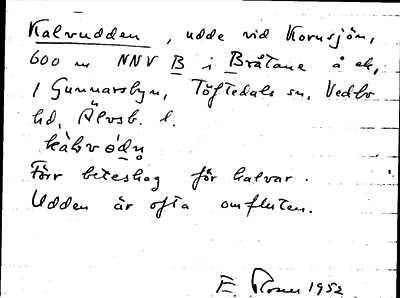 Kalvudden, udde vid Kornsjön,
600 m NNV B i Bråtane å ek,
1 Gunnarsbyn, Töftedals sn, Vedbo
hd, Älvsb. l.
kàlvódn
Förr beteshag för kalvar.
Udden är ofta omfluten.
E. Rosen 1952